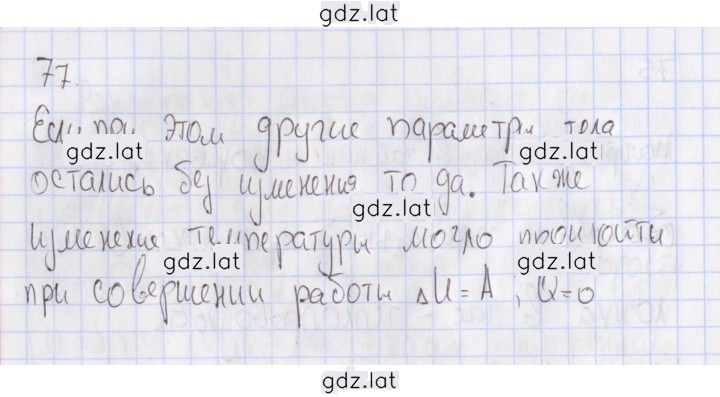 gdz.lat
77.
Если при этом другие параметры тела
gdz.lat gdz.lat
остались без изменения то да. Также
gdz.lat
изменение температуры могло произойти
gdz.lat gdz.lat
при совершении работы ΔU = A ; Q=0
gdz.lat